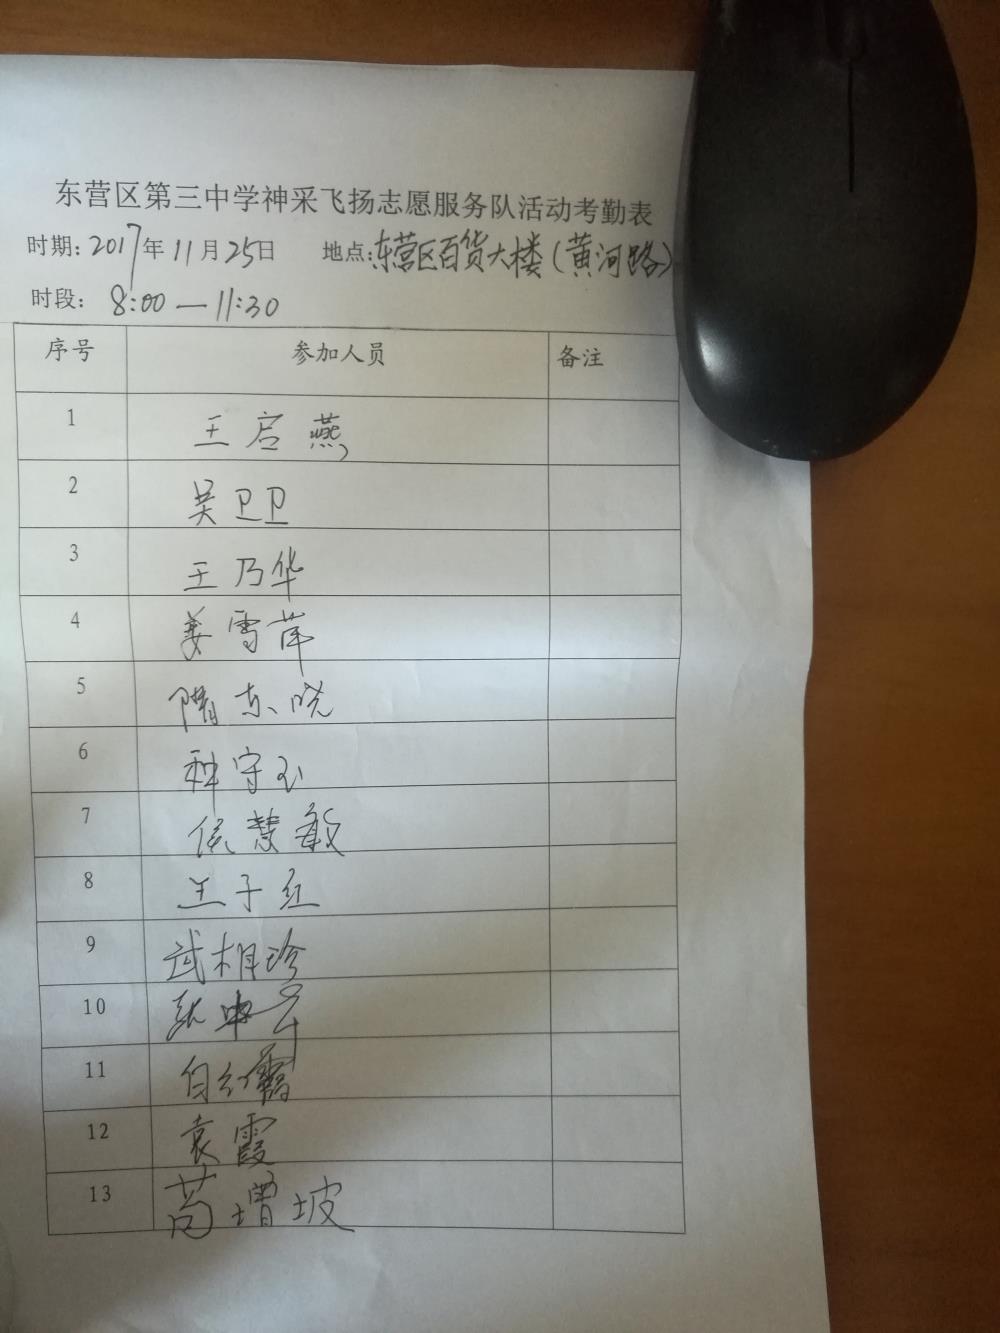 东营区第三中学神采飞扬志愿服务队活动考勤表
时期：2017年11月25日 地点：东营区百货大楼（黄河路）
时段：8:00—11:30
序号 参加人员 备注
1 王启燕
2 吴卫卫
3 王乃华
4 姜雪萍
5 隋东晓
6 种守玉
7 侯慧敏
8 王子红
9 武相珍
10 张
11 白红霞
12 袁霞
13 苟增坡